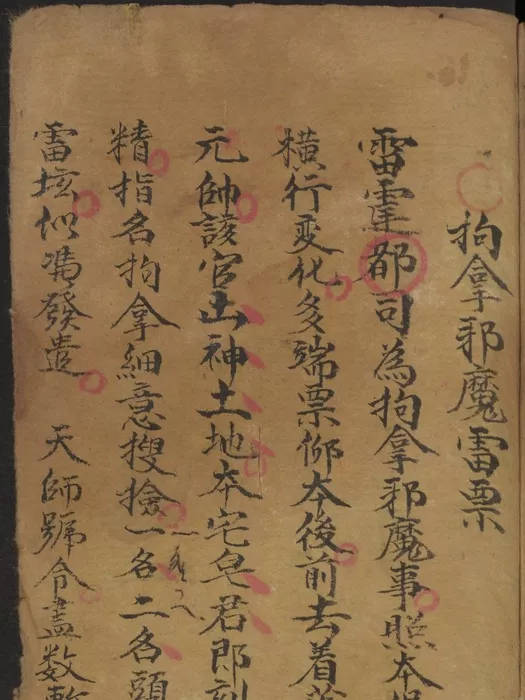 拘拿邪魔雷票
雷霆都司為拘拿邪魔事照本
橫行变化多端票仰本後前去着
元帥該官山神土地本宅皂君即刻
精指名拘拿細意搜撿一名二名頭
雷壇似憑發遣 天師號令盡数